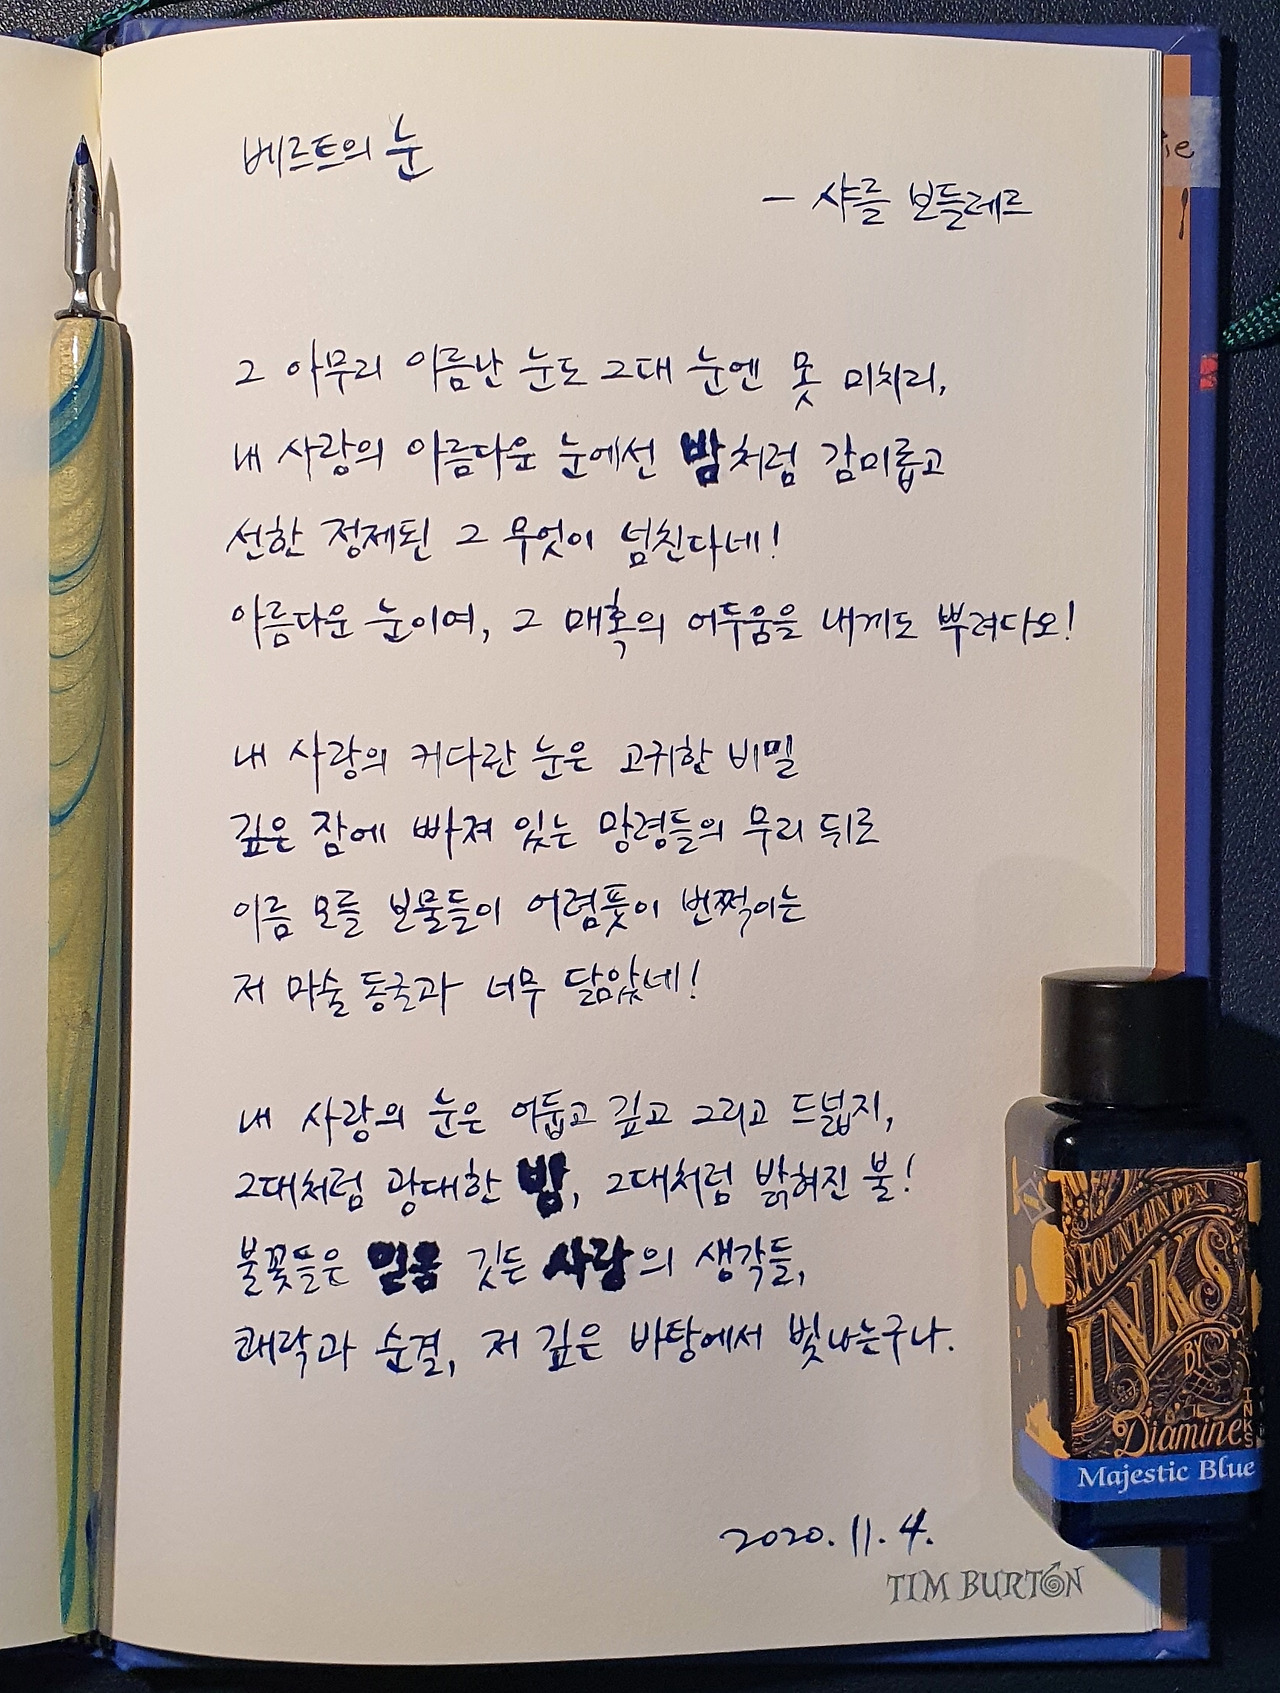 베르트의 눈
- 샤를 보들레르
그 아무리 이름난 눈도 그대 눈엔 못 미치리,
내 사랑의 아름다운 눈에선 밤처럼 감미롭고
선한 정제된 그 무엇이 넘친다네!
아름다운 눈이여, 그 매혹의 어두움을 내게도 뿌려다오!
내 사랑의 커다란 눈은 고귀한 비밀
깊은 잠에 빠져 있는 망령들의 무리 뒤로
이름 모를 보물들이 어렴풋이 번쩍이는
저 마술 동굴과 너무 닮았네!
내 사랑의 눈은 어둡고 깊고 그리고 드넓지,
그대처럼 광대한 밤, 그대처럼 밝혀진 불!
불꽃들은 믿음 깃든 사랑의 생각들,
쾌락과 순결, 저 깊은 바탕에서 빛나는구나.
2020. 11. 4.
TIM BURTON
FOUNTAIN PEN
INKS
BY
Diamine
INKS
Majestic Blue